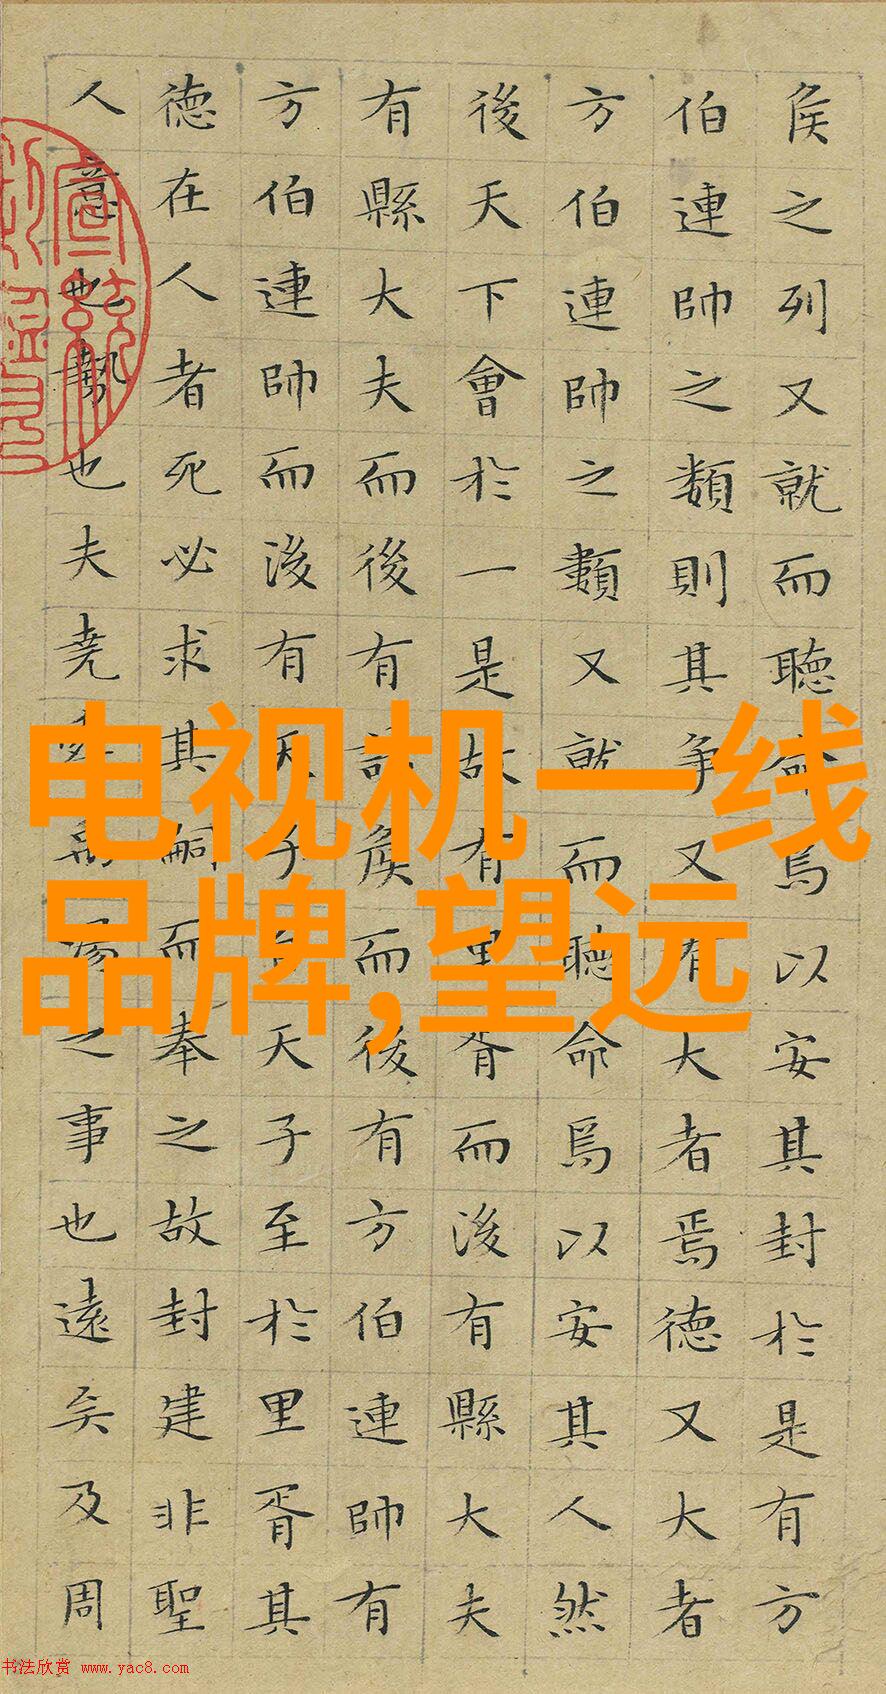 侯之列又就而聽命焉以安其封於是有方
伯連帥之類則其爭又有大者焉德又大者
方伯連帥之類又就而聽命焉以安其人然
後天下會於一是故有里胥而後有縣大夫
有縣大夫而後有諸侯而後有方伯連帥有
方伯連帥而後有天子自天子至於里胥其
德在人者死必求其嗣而奉之故封建非聖
人意也勢也夫堯舜禹湯之事也遠矣及周
电视机一线
品牌,望远
书法欣赏 www.yac8.com